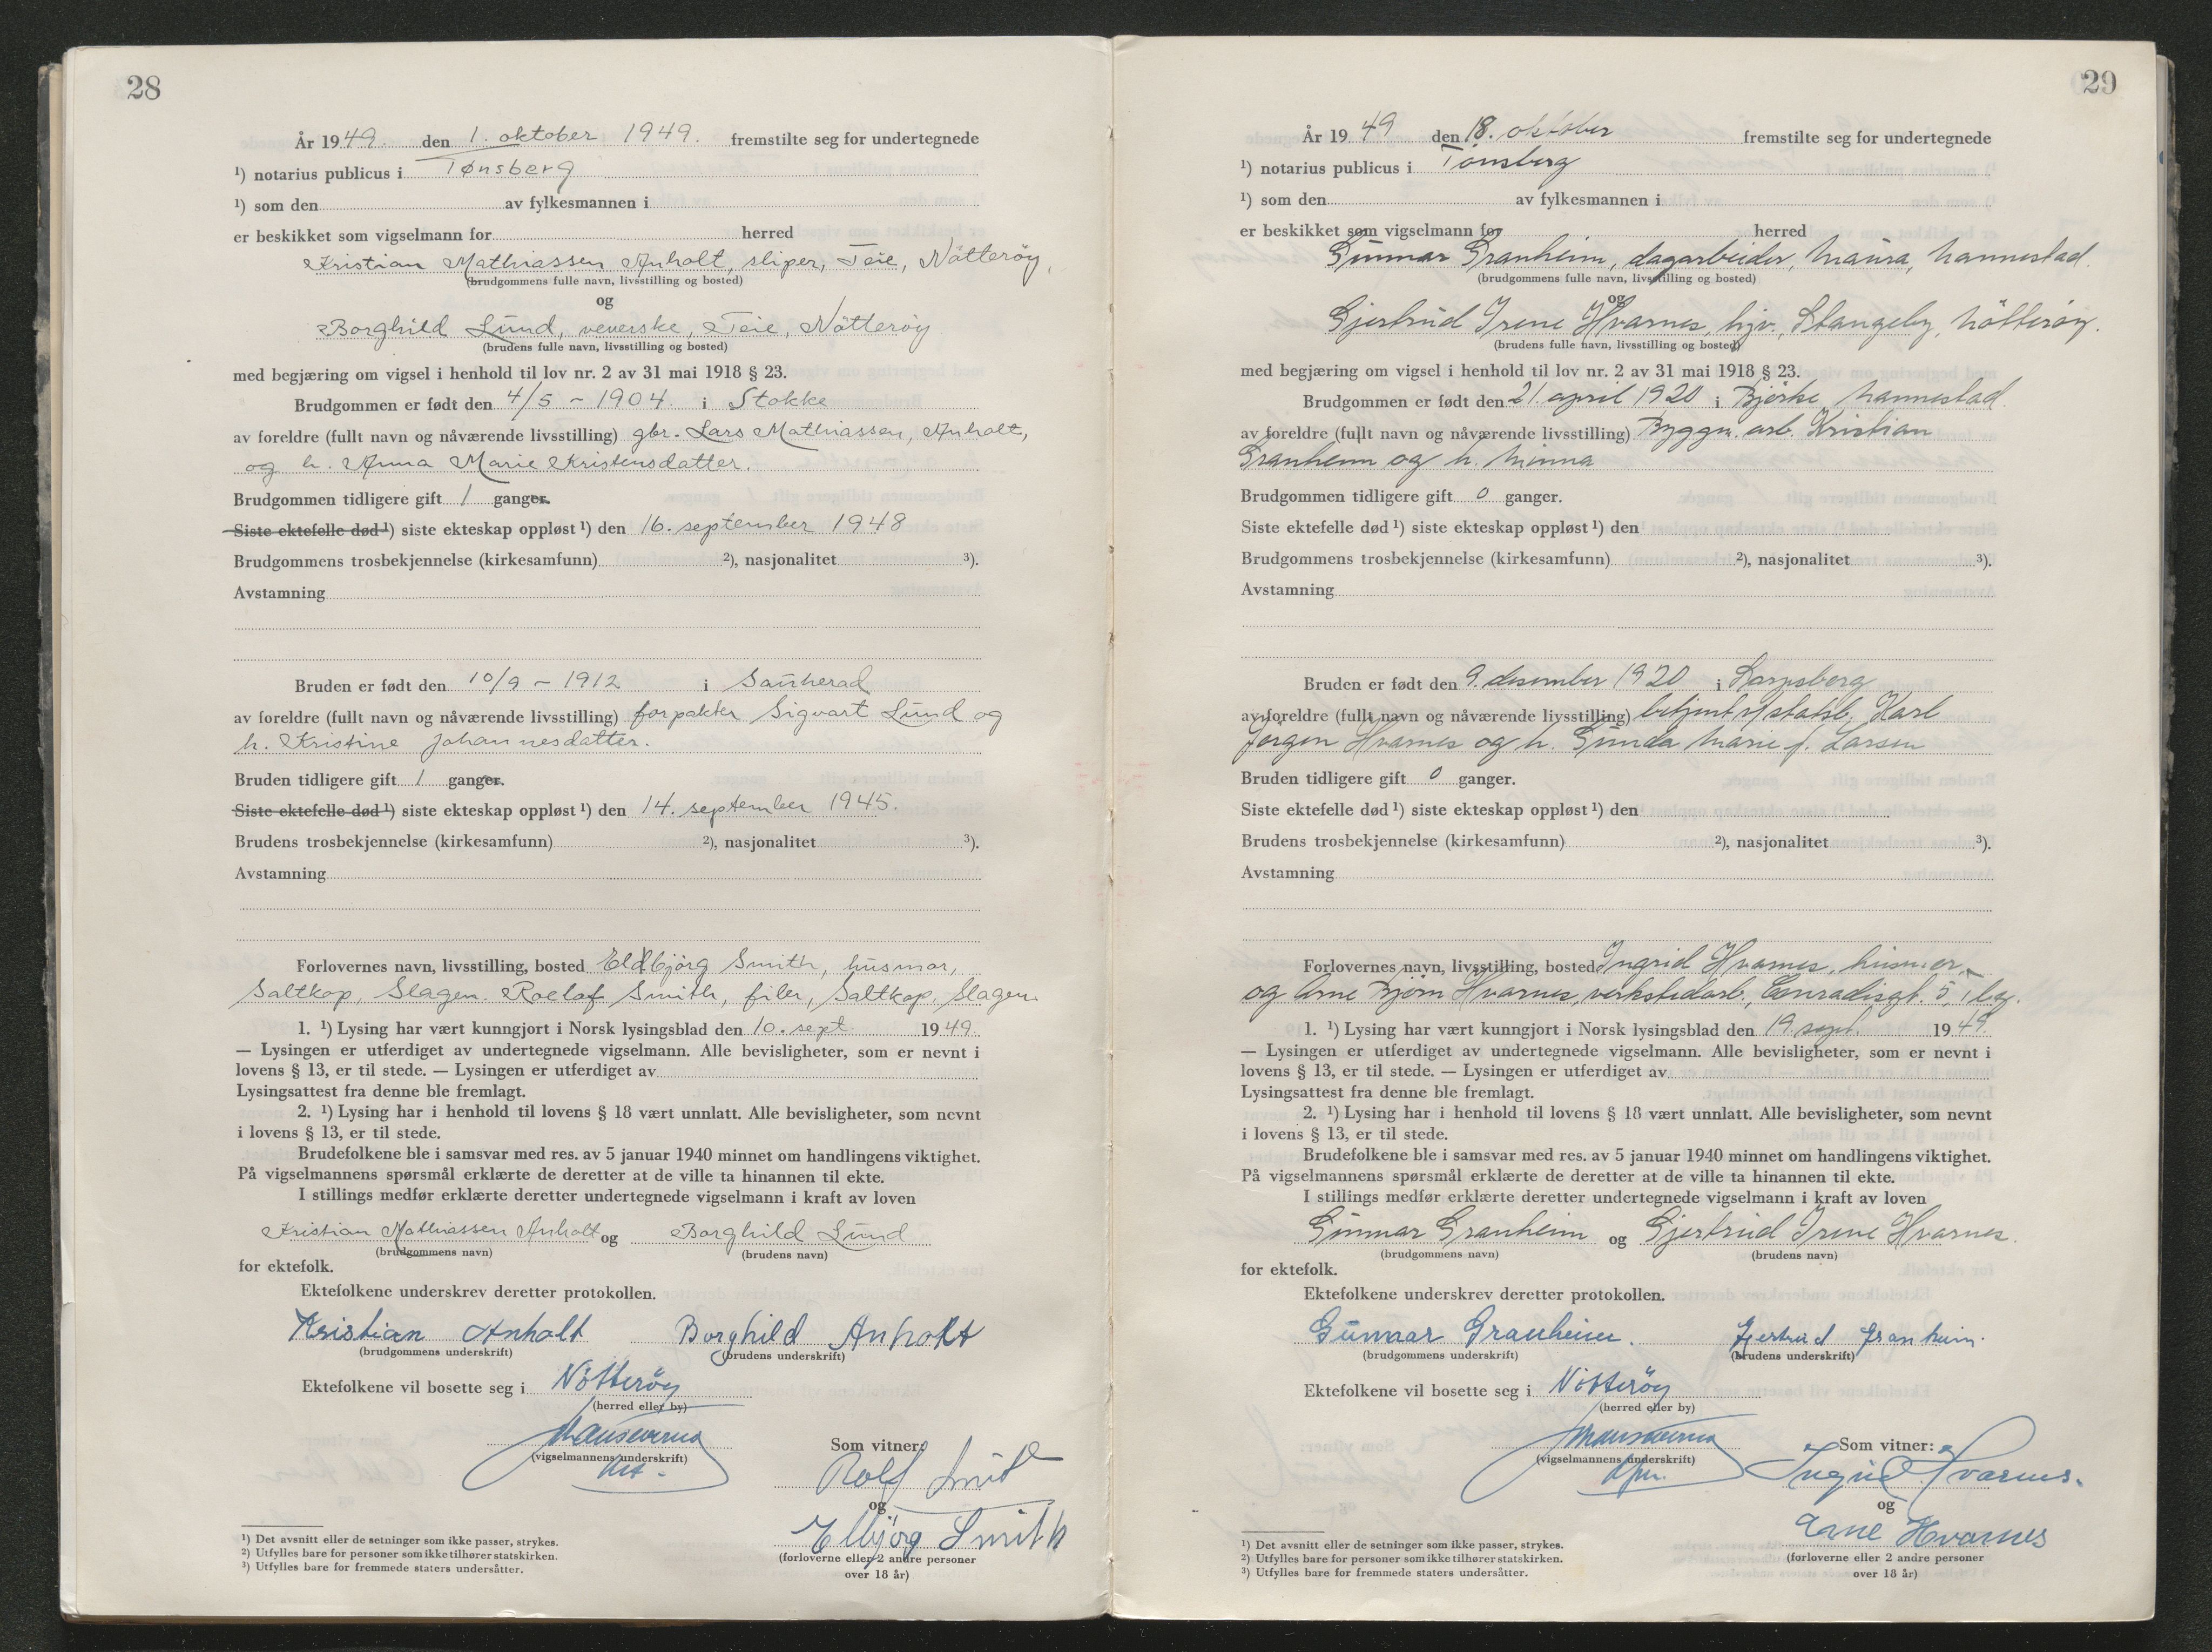 28
År 1949. den 1. oktober 1949. fremstilte seg for undertegnede
¹) notarius publicus i Tønsberg
¹) som den av fylkesmannen i
er beskikket som vigselmann for herred
Kristian Mathiassen Anholt, sliper, Teie, Nötteröy,
(brudgommens fulle navn, livsstilling og bosted)
og
Borghild Lund, veverske, Teie, Nötteröy
(brudens fulle navn, livsstilling og bosted)
med begjæring om vigsel i henhold til lov nr. 2 av 31 mai 1918 § 23.
Brudgommen er født den 4/5 - 1904. i Stokke
av foreldre (fullt navn og nåværende livsstilling) gbr. Lars Mathiassen, Anholt,
og h. Anna Marie Kristensdatter.
Brudgommen tidligere gift 1 ganger.
Siste ektefelle død ¹) siste ekteskap oppløst ¹) den 16. september 1948
Brudgommens trosbekjennelse (kirkesamfunn) ²), nasjonalitet ³).
Avstamning
Bruden er født den 10/9 - 1912 i Sauherad
av foreldre (fullt navn og nåværende livsstilling) forpakter Sigvart Lund og
h. Kristine Johannesdatter.
Bruden tidligere gift 1 ganger.
Siste ektefelle død ¹) siste ekteskap oppløst ¹) den 14. september 1945.
Brudens trosbekjennelse (kirkesamfunn) ²), nasjonalitet ³).
Avstamning
Forlovernes navn, livsstilling, bosted Eldbjörg Smith, husmor,
Saltkop, Slagen. Roelof Smith, filer, Saltkop, Slagen.
1. ¹) Lysing har vært kunngjort i Norsk lysingsblad den 10. sept. 1949
— Lysingen er utferdiget av undertegnede vigselmann. Alle bevisligheter, som er nevnt i
lovens § 13, er til stede. — Lysingen er utferdiget av
Lysingsattest fra denne ble fremlagt.
2. ¹) Lysing har i henhold til lovens § 18 vært unnlatt. Alle bevisligheter, som nevnt
i lovens § 13, er til stede.
Brudefolkene ble i samsvar med res. av 5 januar 1940 minnet om handlingens viktighet.
På vigselmannens spørsmål erklærte de deretter at de ville ta hinannen til ekte.
I stillings medfør erklærte deretter undertegnede vigselmann i kraft av loven
Kristian Mathiassen Anholt og Borghild Lund
(brudgommens navn) (brudens navn)
for ektefolk.
Ektefolkene underskrev deretter protokollen.
Kristian Anholt Borghild Anholt
(brudgommens underskrift) (brudens underskrift)
Ektefolkene vil bosette seg i Nötteröy
(herred eller by)
Som vitner:
(vigselmannens underskrift)
Rolf Smit
og
Elbjörg Smith
(forloverne eller 2 andre personer
over 18 år)
¹) Det avsnitt eller de setninger som ikke passer, strykes.
²) Utfylles bare for personer som ikke tilhører statskirken.
³) Utfylles bare for fremmede staters undersåtter.
29
År 1949 den 18. oktober fremstilte seg for undertegnede
¹) notarius publicus i Tönsberg
¹) som den av fylkesmannen i
er beskikket som vigselmann for herred
Gunnar Granheim, dagarbeider, Maura, Nannestad.
(brudgommens fulle navn, livsstilling og bosted)
og
Gjertrud Irene Hvarnes, hjv., Stangeby, Nötteröy.
(brudens fulle navn, livsstilling og bosted)
med begjæring om vigsel i henhold til lov nr. 2 av 31 mai 1918 § 23.
Brudgommen er født den 21. april 1920 i Bjerke, Nannestad.
av foreldre (fullt navn og nåværende livsstilling) Byggn. arb. Kristian
Granheim og h. Minna
Brudgommen tidligere gift 0 ganger.
Siste ektefelle død ¹) siste ekteskap oppløst ¹) den
Brudgommens trosbekjennelse (kirkesamfunn) ²), nasjonalitet ³).
Avstamning
Bruden er født den 9. desember 1920 i
av foreldre (fullt navn og nåværende livsstilling) betjent v/statsb. Karl
Jørgen Hvarnes og h. Gunda Marie f. Larsen
Bruden tidligere gift 0 ganger.
Siste ektefelle død ¹) siste ekteskap oppløst ¹) den
Brudens trosbekjennelse (kirkesamfunn) ²), nasjonalitet ³).
Avstamning
Forlovernes navn, livsstilling, bosted Ingrid Hvarnes,
og Arne Bjørn Hvarnes, verkstedarb., Conradisgt. 5,
1. ¹) Lysing har vært kunngjort i Norsk lysingsblad den 19. sept. 1949
— Lysingen er utferdiget av undertegnede vigselmann. Alle bevisligheter, som er nevnt i
lovens § 13, er til stede. — Lysingen er utferdiget av
Lysingsattest fra denne ble fremlagt.
2. ¹) Lysing har i henhold til lovens § 18 vært unnlatt. Alle bevisligheter, som nevnt
i lovens § 13, er til stede.
Brudefolkene ble i samsvar med res. av 5 januar 1940 minnet om handlingens viktighet.
På vigselmannens spørsmål erklærte de deretter at de ville ta hinannen til ekte.
I stillings medfør erklærte deretter undertegnede vigselmann i kraft av loven
Gunnar Granheim og Gjertrud Irene Hvarnes.
(brudgommens navn) (brudens navn)
for ektefolk.
Ektefolkene underskrev deretter protokollen.
Gunnar Granheim. Gjertrud Granheim.
(brudgommens underskrift) (brudens underskrift)
Ektefolkene vil bosette seg i Nötteröy
(herred eller by)
Som vitner:
(vigselmannens underskrift)
Ingrid Hvarnes.
og
Arne Hvarnes
(forloverne eller 2 andre personer
over 18 år)
¹) Det avsnitt eller de setninger som ikke passer, strykes.
²) Utfylles bare for personer som ikke tilhører statskirken.
³) Utfylles bare for fremmede staters undersåtter.